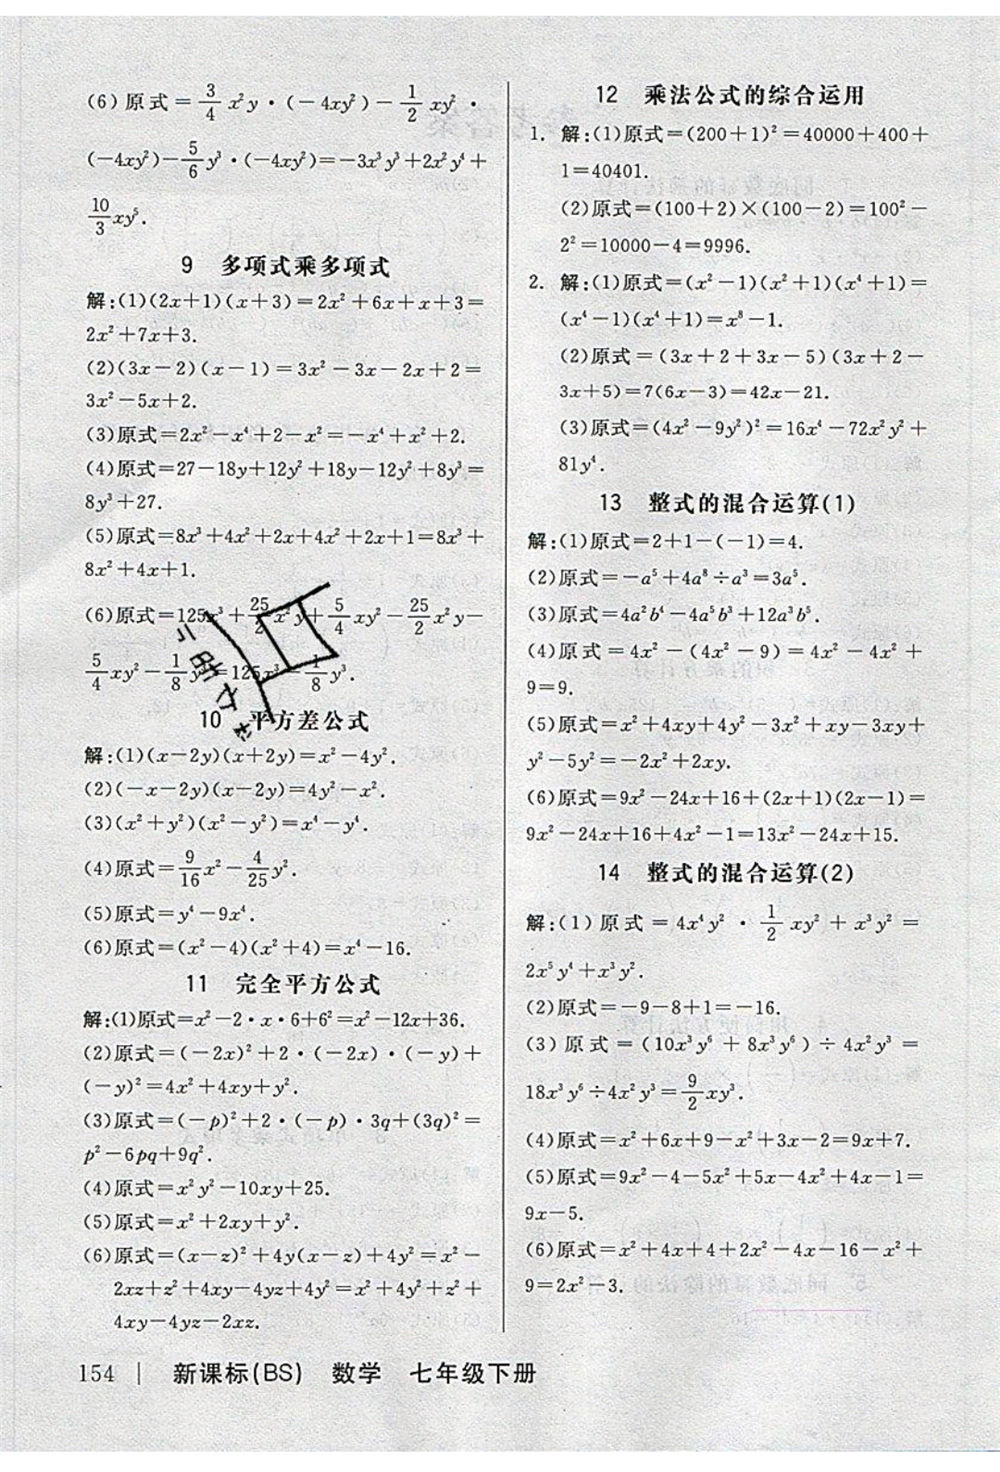 (6)原式=3/4x²y·(-4xy²)-1/2xy·
(-4xy²)-5/6y³·(-4xy²)=-3x³y³+2x²y⁴+
10/3xy⁵.
9 多项式乘多项式
解:(1)(2x+1)(x+3)=2x²+6x+x+3=
2x²+7x+3.
(2)(3x-2)(x-1)=3x²-3x-2x+2=
3x²-5x+2.
(3)原式=2x²-x⁴+2-x²=-x⁴+x²+2.
(4)原式=27-18y+12y²+18y-12y²+8y³=
8y³+27.
(5)原式=8x³+4x²+2x+4x²+2x+1=8x³+
8x²+4x+1.
(6)原式=125x³+25/2x²y+5/4xy²-25/2x²y-
5/4xy²-1/8y³=125x³-1/8y³.
10 平方差公式
解:(1)(x-2y)(x+2y)=x²-4y².
(2)(-x-2y)(x-2y)=4y²-x².
(3)(x²+y²)(x²-y²)=x⁴-y⁴.
(4)原式=9/16x²-4/25y².
(5)原式=y⁴-9x⁴.
(6)原式=(x²-4)(x²+4)=x⁴-16.
11 完全平方公式
解:(1)原式=x²-2·x·6+6²=x²-12x+36.
(2)原式=(-2x)²+2·(-2x)·(-y)+
(-y)²=4x²+4xy+y².
(3)原式=(-p)²+2·(-p)·3q+(3q)²=
p²-6pq+9q².
(4)原式=x²y²-10xy+25.
(5)原式=x²+2xy+y².
(6)原式=(x-z)²+4y(x-z)+4y²=x²-
2xz+z²+4xy-4yz+4y²=x²+4y²+z²+
4xy-4yz-2xz.
12 乘法公式的综合运用
1. 解:(1)原式=(200+1)²=40000+400+
1=40401.
(2)原式=(100+2)×(100-2)=100²-
2²=10000-4=9996.
2. 解:(1)原式=(x²-1)(x²+1)(x⁴+1)=
(x⁴-1)(x⁴+1)=x⁸-1.
(2)原式=(3x+2+3x-5)(3x+2-
3x+5)=7(6x-3)=42x-21.
(3)原式=(4x²-9y²)²=16x⁴-72x²y²+
81y⁴.
13 整式的混合运算(1)
解:(1)原式=2+1-(-1)=4.
(2)原式=-a⁵+4a⁸÷a³=3a⁵.
(3)原式=4a²b⁴-4a⁵b³+12a³b⁵.
(4)原式=4x²-(4x²-9)=4x²-4x²+
9=9.
(5)原式=x²+4xy+4y²-3x²+xy-3xy+
y²-5y²=-2x²+2xy.
(6)原式=9x²-24x+16+(2x+1)(2x-1)=
9x²-24x+16+4x²-1=13x²-24x+15.
14 整式的混合运算(2)
解:(1)原式=4x⁴y²·1/2xy²+x³y²=
2x⁵y⁴+x³y².
(2)原式=-9-8+1=-16.
(3)原式=(10x³y⁶+8x³y⁶)÷4x²y³=
18x³y⁶÷4x²y³=9/2xy³.
(4)原式=x²+6x+9-x²+3x-2=9x+7.
(5)原式=9x²-4-5x²+5x-4x²+4x-1=
9x-5.
(6)原式=x²+4x+4+2x²-4x-16-x²+
9=2x²-3.
154 | 新课标(BS) 数学 七年级下册